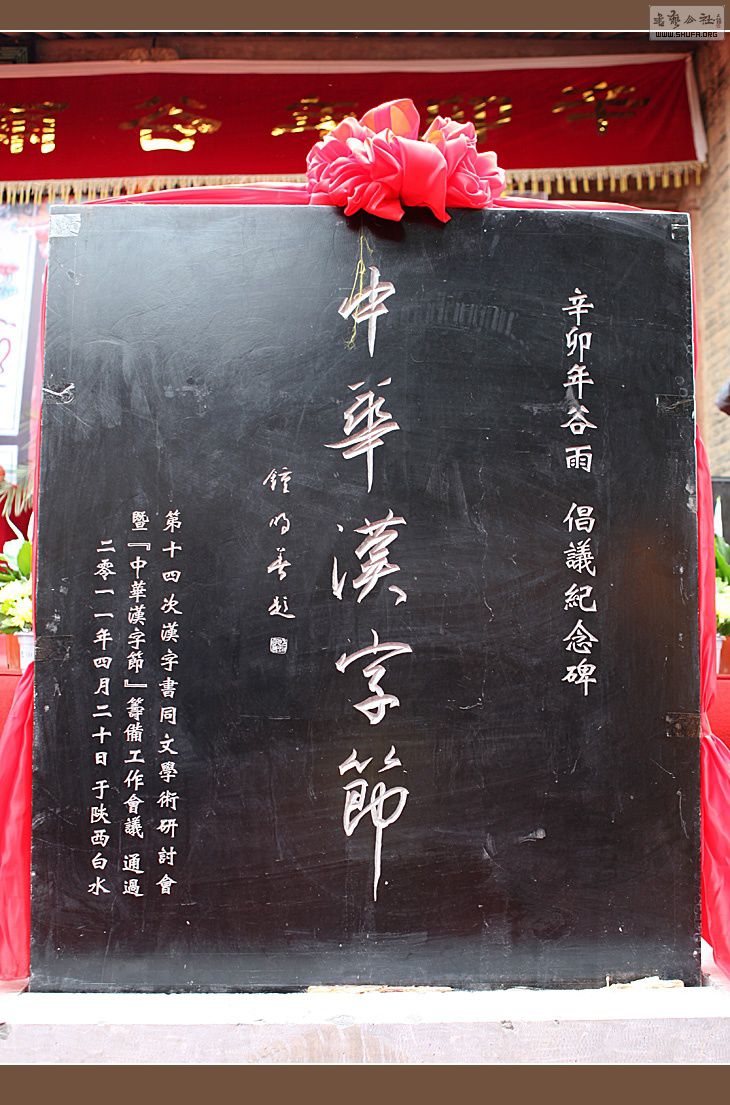 辛卯年谷雨 倡議紀念碑
中華漢字節
鍾明善題
第十四次漢字書同文學術研討會
暨『中華漢字節』籌備工作會議 通過
二零一一年四月二十日 于陝西白水
WWW.SHUFA.ORG